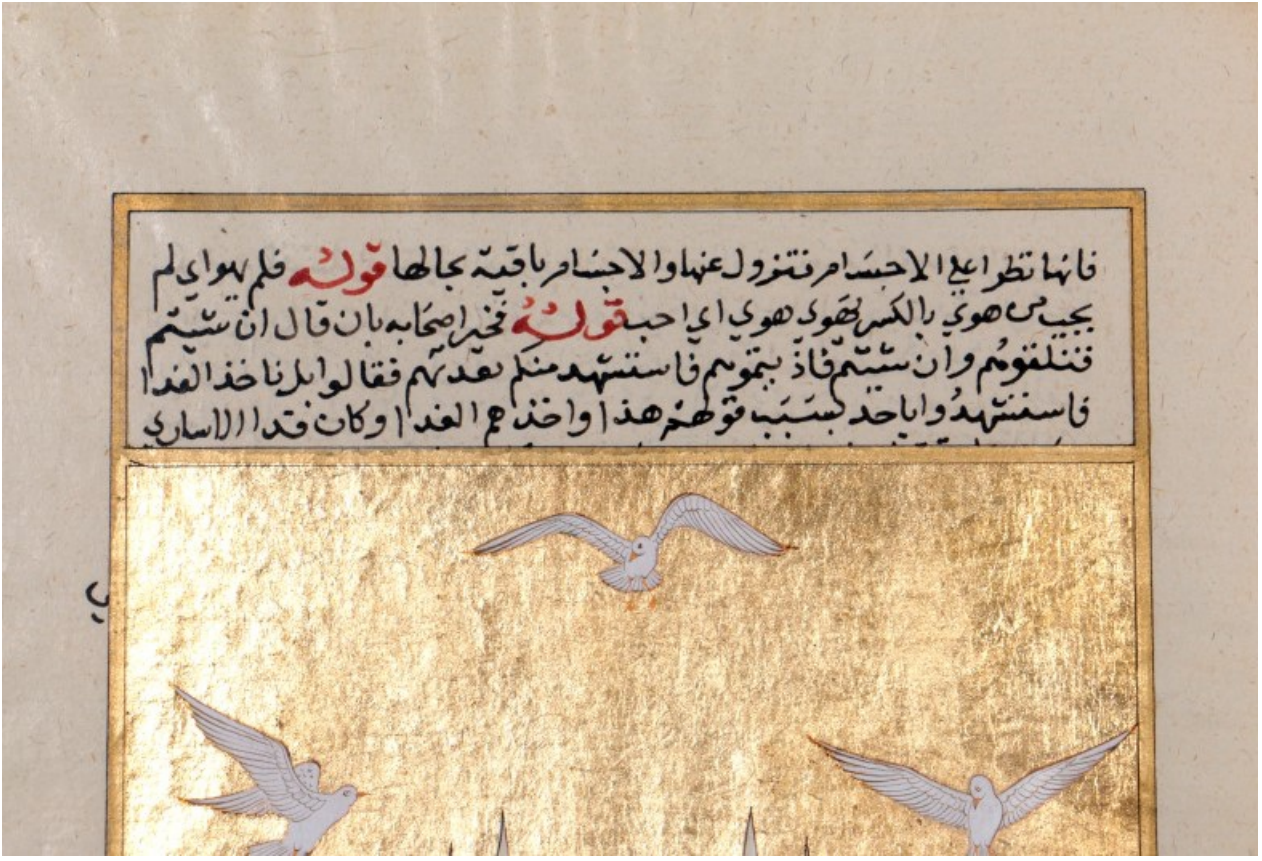 فانها تطرا علي الاجسام فتزول عنها والاجسام باقية بحالها قوله فلم يهو اي لم
يحب من هوي بالكسر يهوي هوي اي احب قوله فخير اصحابه بان قال ان شيتم
فتلقوهم وان شيتم فاستشهد منكم بعدتهم فقالوا بل ناخذ الفدا
فاستشهدوا باحد بسبب قولهم هذا واخذهم الفدا وكان فدا الاساري